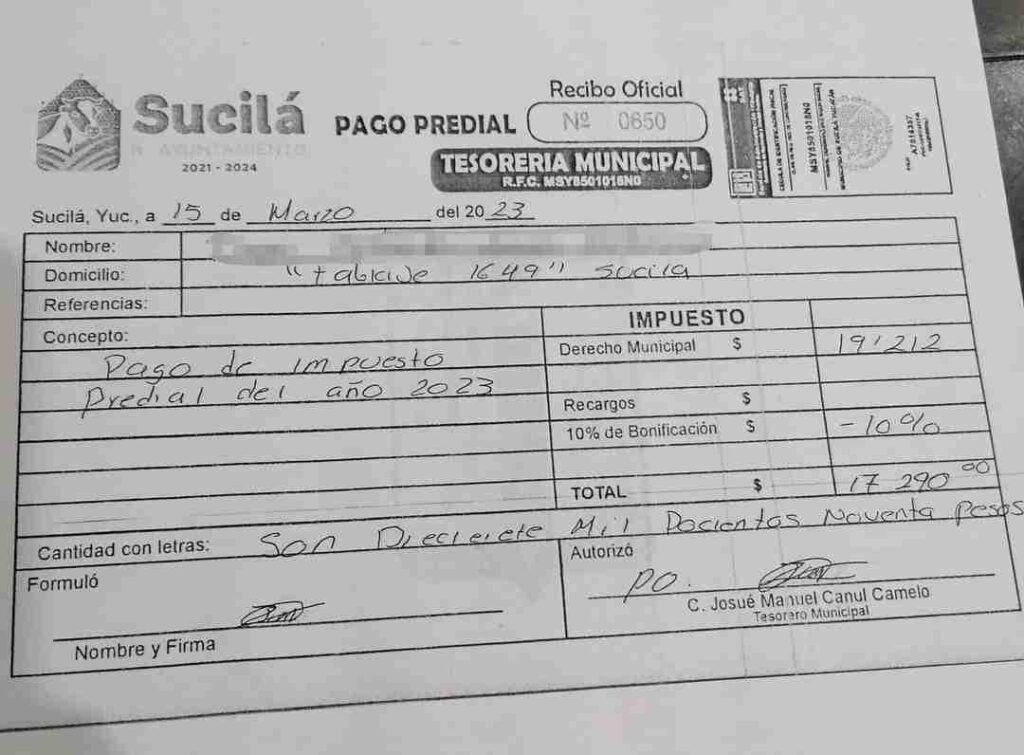 Sucilá
H. AYUNTAMIENTO
2021 - 2024
PAGO PREDIAL
Recibo Oficial
Nº 0650
TESORERIA MUNICIPAL
R.F.C. MSY8501018N0
MSY8501018N0
Sucilá, Yuc., a 15 de Marzo del 2023
Nombre:
Domicilio: "tablaje 1649" Sucila
Referencias:
Concepto:
Pago de impuesto
Predial del año 2023
IMPUESTO
Derecho Municipal $ 19'212
Recargos $
10% de Bonificación $ -10%
TOTAL $ 17 290 00
Cantidad con letras: Son Diecisiete Mil Docientos Noventa pesos
Formuló
Nombre y Firma
Autorizó
PO.
C. Josué Manuel Canul Camelo
Tesorero Municipal